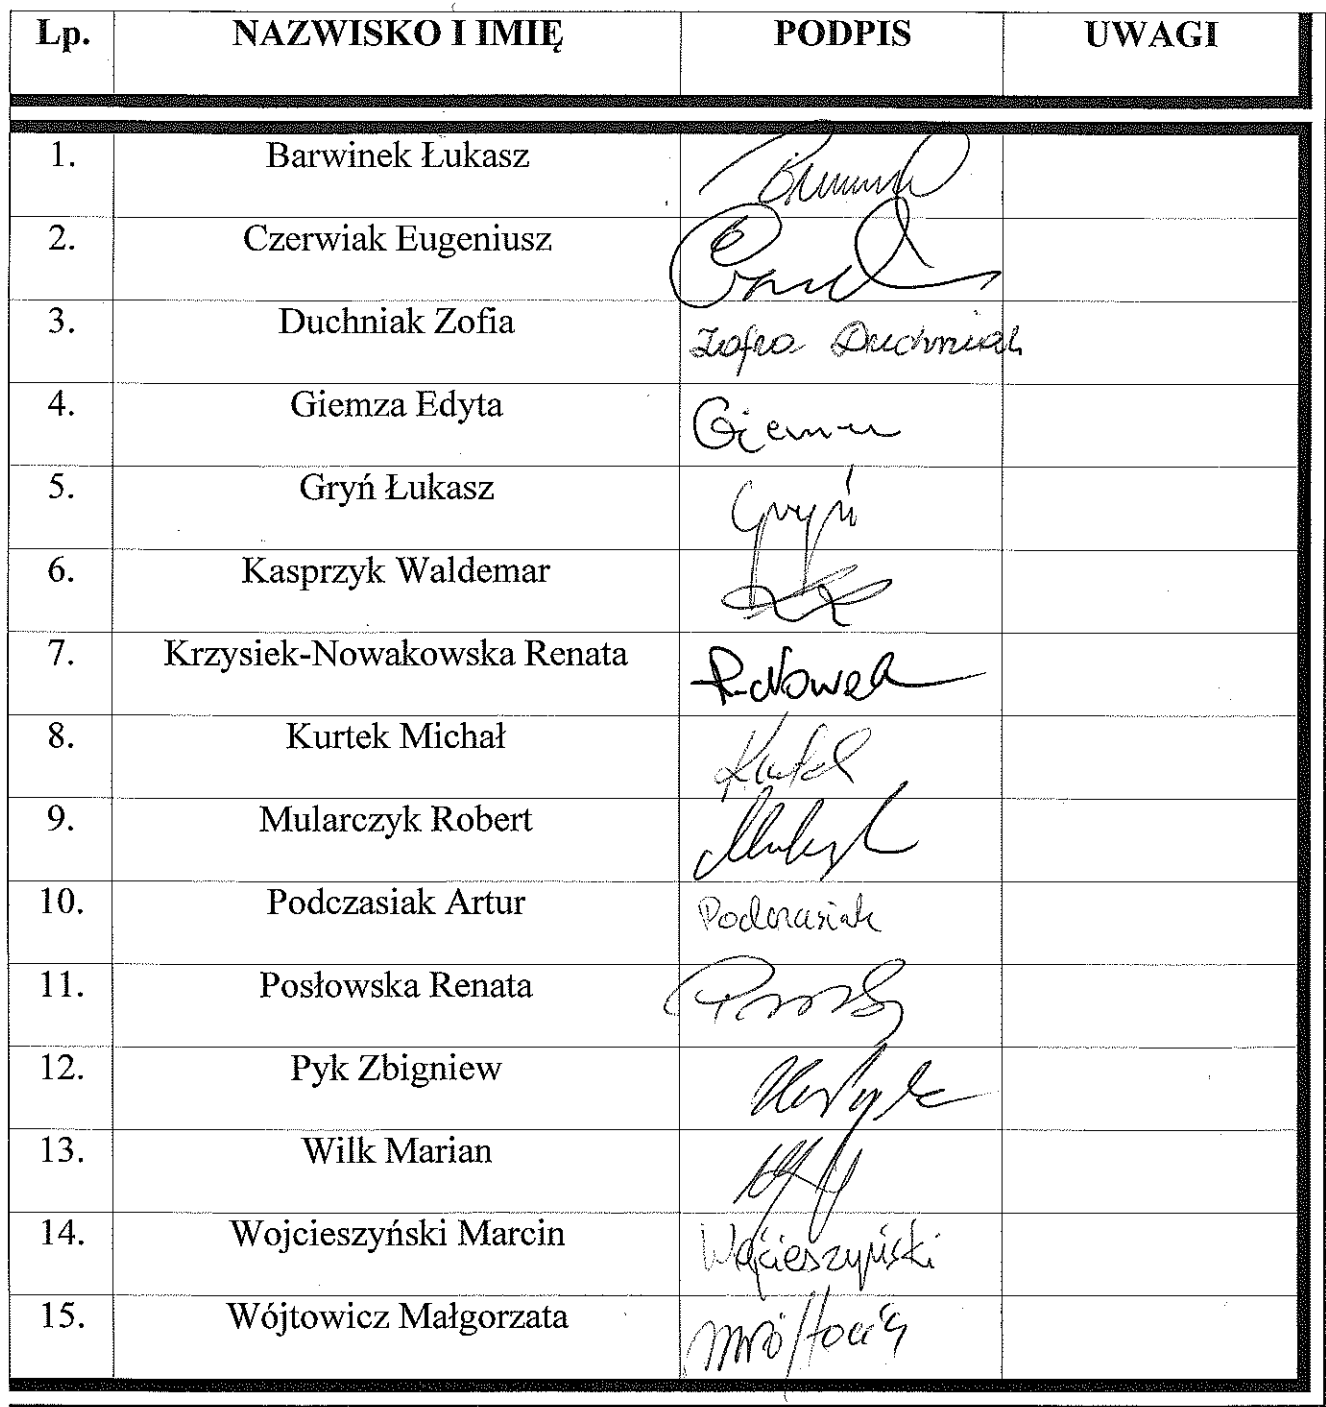 Lp. NAZWISKO I IMIĘ PODPIS UWAGI
1. Barwinek Łukasz
2. Czerwiak Eugeniusz
3. Duchniak Zofia Zofia Duchniak
4. Giemza Edyta Giemza
5. Gryń Łukasz Gryń
6. Kasprzyk Waldemar
7. Krzysiek-Nowakowska Renata R. Nowak
8. Kurtek Michał Kurtek
9. Mularczyk Robert
10. Podczasiak Artur Podczasiak
11. Posłowska Renata
12. Pyk Zbigniew
13. Wilk Marian
14. Wojcieszyński Marcin Wojcieszyński
15. Wójtowicz Małgorzata